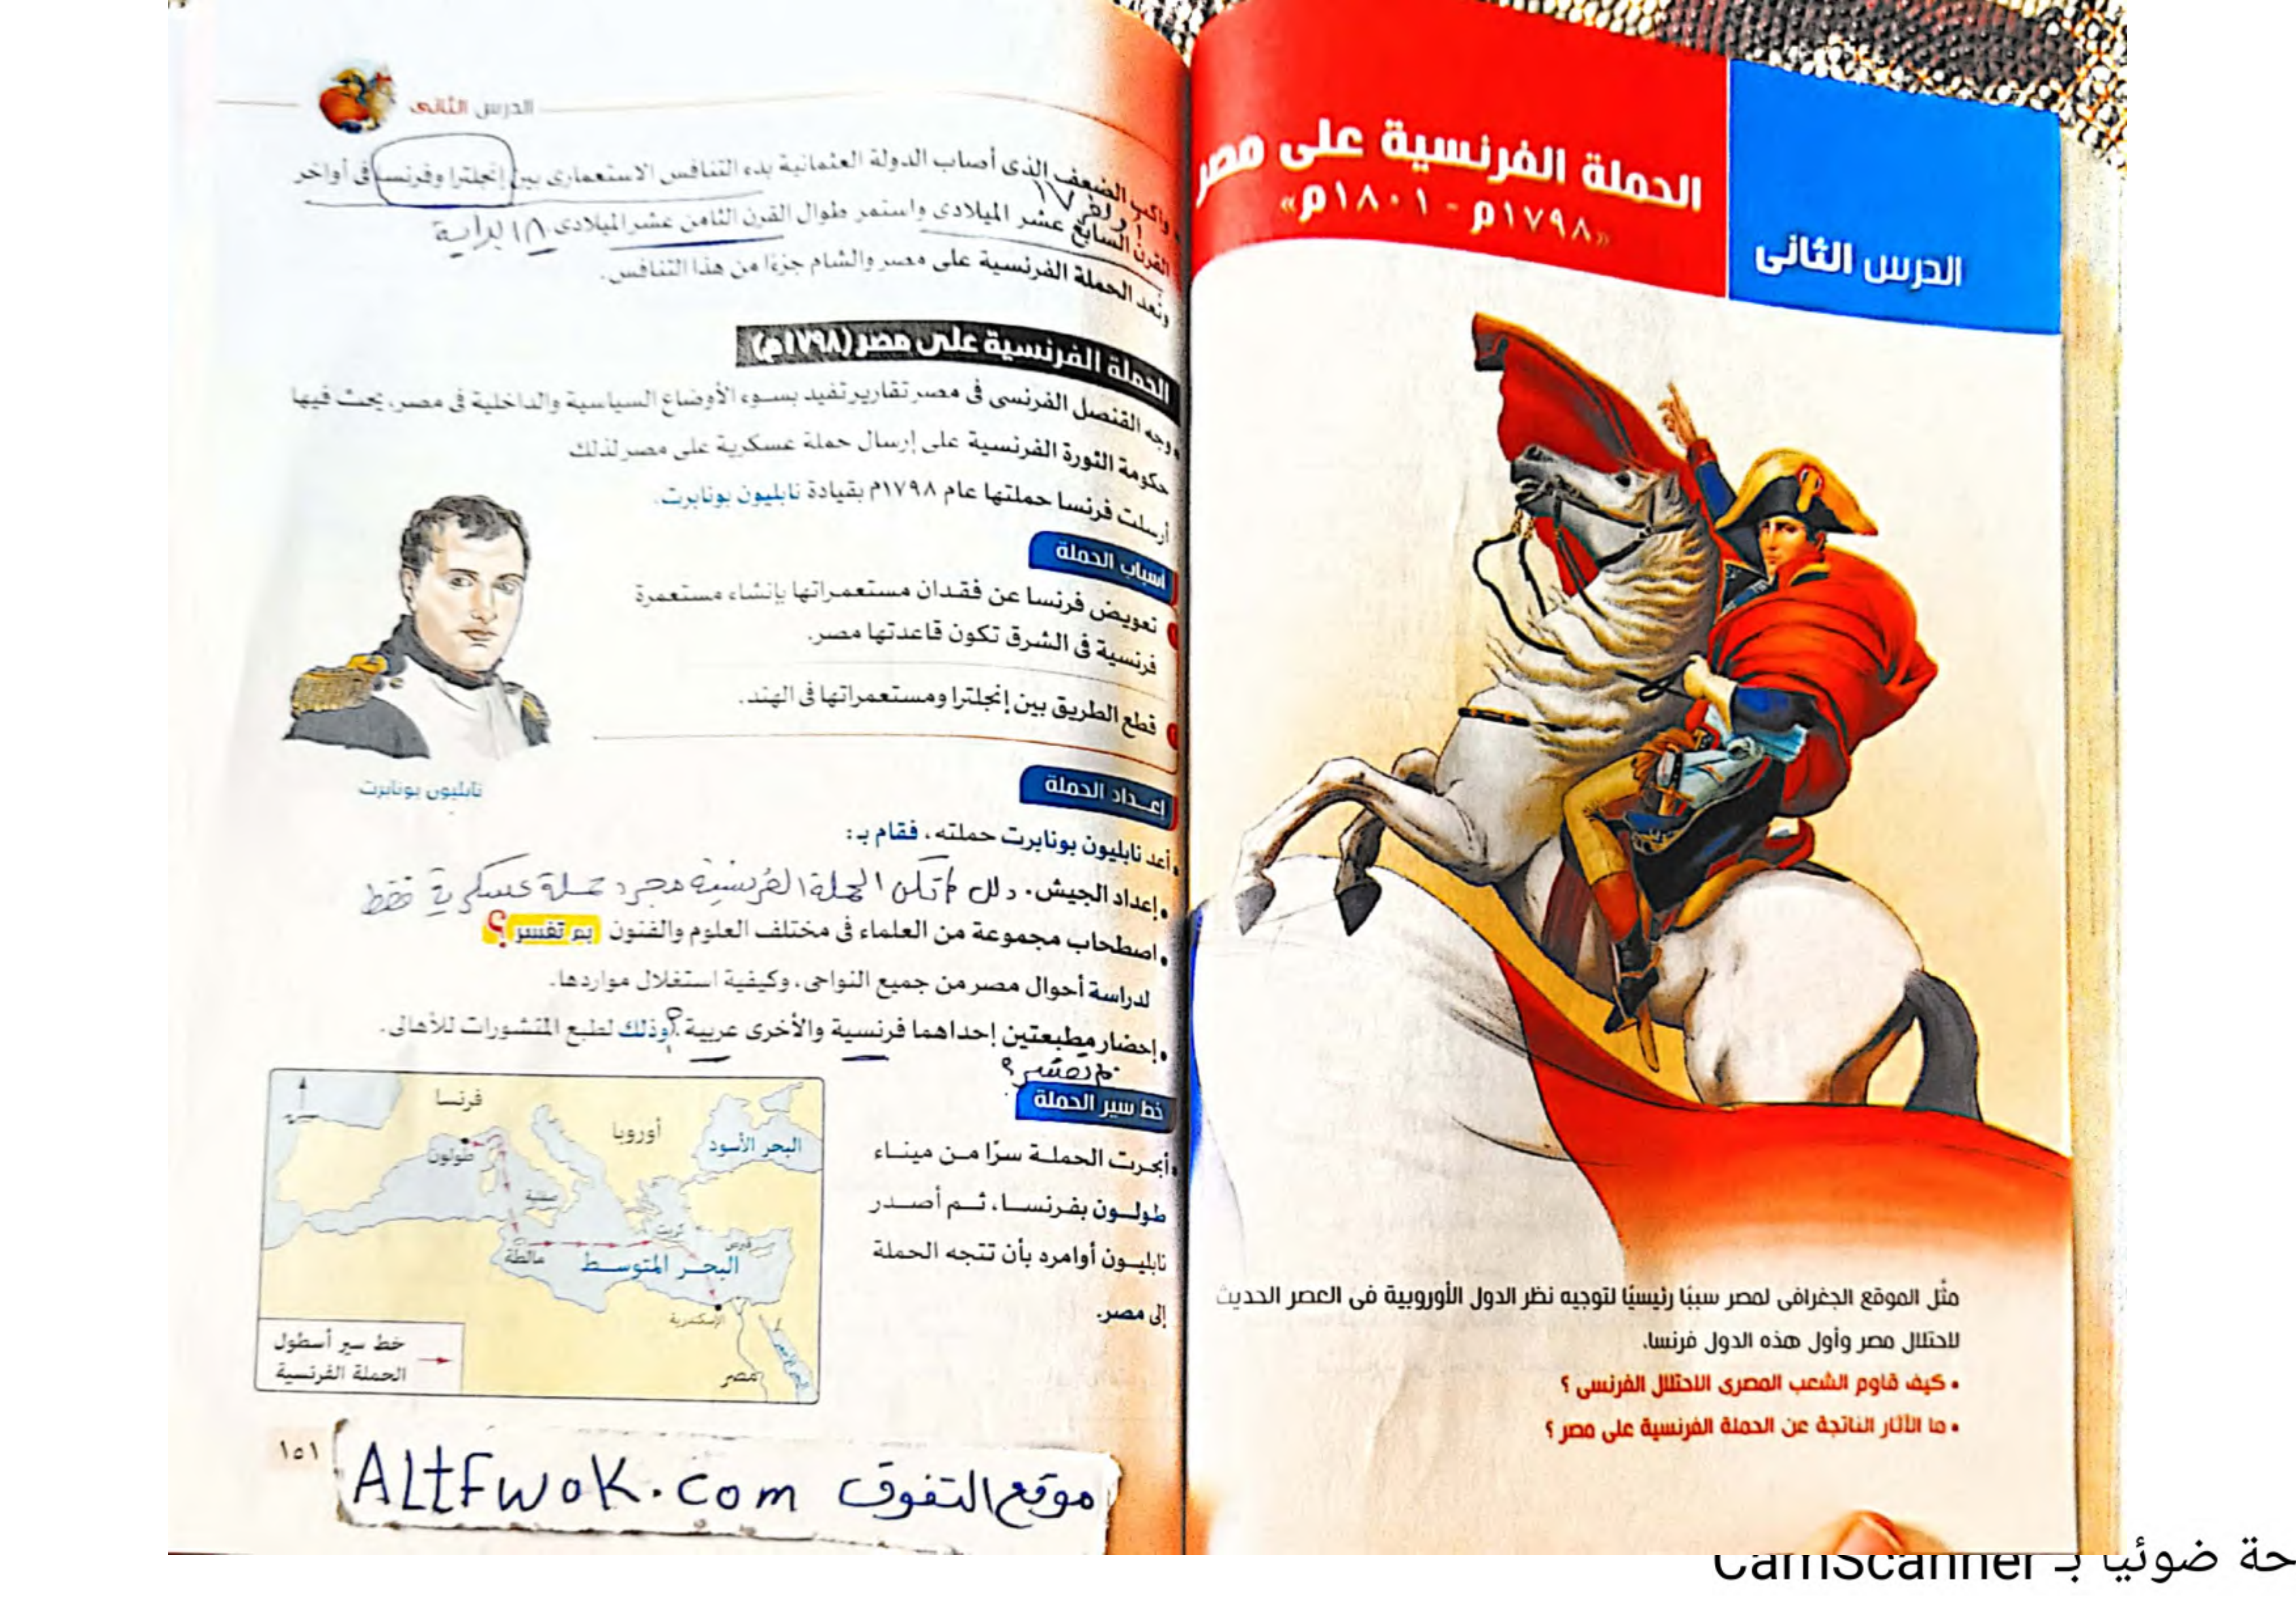 الدرس الثانى
الحملة الفرنسية على مصر
«١٧٩٨م - ١٨٠١م»
مثّل الموقع الجغرافى لمصر سببًا رئيسيًا لتوجيه نظر الدول الأوروبية فى العصر الحديث
لاحتلال مصر وأول هذه الدول فرنسا.
• كيف قاوم الشعب المصرى الاحتلال الفرنسى ؟
• ما الآثار الناتجة عن الحملة الفرنسية على مصر ؟
الدرس الثانى
• واكب الضعف الذى أصاب الدولة العثمانية بدء التنافس الاستعمارى بين إنجلترا وفرنسا فى أواخر
أواخر ١٧
القرن السابع عشر الميلادى واستمر طوال القرن الثامن عشر الميلادى. ١٨ بداية
وتعد الحملة الفرنسية على مصر والشام جزءًا من هذا التنافس.
الحملة الفرنسية على مصر (١٧٩٨م)
• وجه القنصل الفرنسى فى مصر تقارير تفيد بسوء الأوضاع السياسية والداخلية فى مصر، يحث فيها
حكومة الثورة الفرنسية على إرسال حملة عسكرية على مصر لذلك
أرسلت فرنسا حملتها عام ١٧٩٨م بقيادة نابليون بونابرت.
أسباب الحملة
١ تعويض فرنسا عن فقدان مستعمراتها بإنشاء مستعمرة
فرنسية فى الشرق تكون قاعدتها مصر.
٢ قطع الطريق بين إنجلترا ومستعمراتها فى الهند.
نابليون بونابرت
إعداد الحملة
• أعد نابليون بونابرت حملته، فقام بـ:
• إعداد الجيش. دلل لم تكن الحملة الفرنسية مجرد حملة عسكرية فقط
• اصطحاب مجموعة من العلماء فى مختلف العلوم والفنون بم تفسر ؟
لدراسة أحوال مصر من جميع النواحى، وكيفية استغلال مواردها.
• إحضار مطبعتين إحداهما فرنسية والأخرى عربية ؟ وذلك لطبع المنشورات للأهالى.
بم تفسر ؟
خط سير الحملة
• أبحرت الحملة سرًا من ميناء
طولون بفرنسا، ثم أصدر
نابليون أوامره بأن تتجه الحملة
إلى مصر.
فرنسا
أوروبا
البحر الأسود
طولون
صقلية
كريت
قبرص
مالطة
البحر المتوسط
الإسكندرية
البحر الأحمر
مصر
خط سير أسطول
الحملة الفرنسية
١٥١
موقع التفوق ALtFwoK.com
حة ضوئيا بـ CamScanner